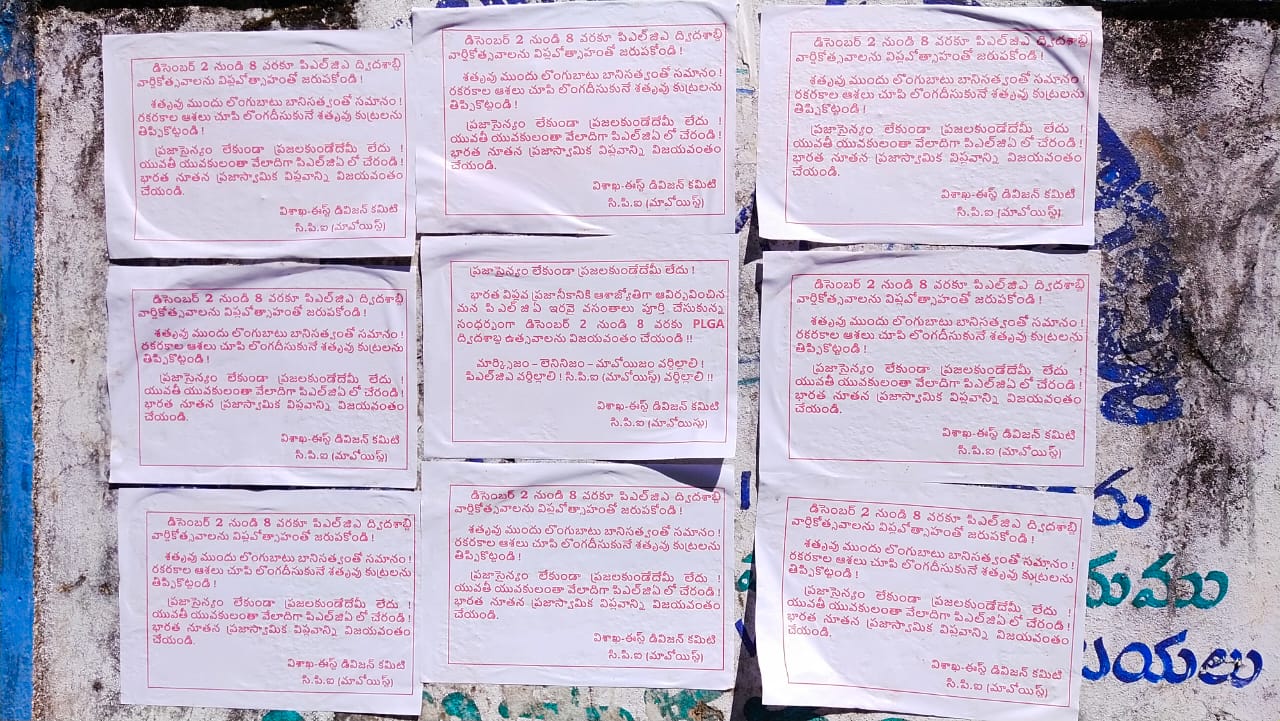 డిసెంబర్ 2 నుండి 8 వరకూ పిఎల్‌జిఎ ద్విదశాబ్ది
వార్షికోత్సవాలను విప్లవోత్సాహంతో జరుపకోండి !
శతృవు ముందు లొంగుబాటు బానిసత్వంతో సమానం !
రకరకాల ఆశలు చూపి లొంగదీసుకునే శతృవు కుట్రలను
తిప్పికొట్టండి !
ప్రజాసైన్యం లేకుండా ప్రజలకుండేదేమీ లేదు !
యువతీ యువకులంతా వేలాదిగా పిఎల్‌జిఏ లో చేరండి !
భారత నూతన ప్రజాస్వామిక విప్లవాన్ని విజయవంతం
చేయండి.
విశాఖ-ఈస్ట్ డివిజన్ కమిటి
సి.పి.ఐ (మావోయిస్ట్)
డిసెంబర్ 2 నుండి 8 వరకూ పిఎల్‌జిఎ ద్విదశాబ్ది
వార్షికోత్సవాలను విప్లవోత్సాహంతో జరుపకోండి !
శతృవు ముందు లొంగుబాటు బానిసత్వంతో సమానం !
రకరకాల ఆశలు చూపి లొంగదీసుకునే శతృవు కుట్రలను
తిప్పికొట్టండి !
ప్రజాసైన్యం లేకుండా ప్రజలకుండేదేమీ లేదు !
యువతీ యువకులంతా వేలాదిగా పిఎల్‌జిఏ లో చేరండి !
భారత నూతన ప్రజాస్వామిక విప్లవాన్ని విజయవంతం
చేయండి.
విశాఖ-ఈస్ట్ డివిజన్ కమిటి
సి.పి.ఐ (మావోయిస్ట్)
డిసెంబర్ 2 నుండి 8 వరకూ పిఎల్‌జిఎ ద్విదశాబ్ది
వార్షికోత్సవాలను విప్లవోత్సాహంతో జరుపకోండి !
శతృవు ముందు లొంగుబాటు బానిసత్వంతో సమానం !
రకరకాల ఆశలు చూపి లొంగదీసుకునే శతృవు కుట్రలను
తిప్పికొట్టండి !
ప్రజాసైన్యం లేకుండా ప్రజలకుండేదేమీ లేదు !
యువతీ యువకులంతా వేలాదిగా పిఎల్‌జిఏ లో చేరండి !
భారత నూతన ప్రజాస్వామిక విప్లవాన్ని విజయవంతం
చేయండి.
విశాఖ-ఈస్ట్ డివిజన్ కమిటి
సి.పి.ఐ (మావోయిస్ట్)
డిసెంబర్ 2 నుండి 8 వరకూ పిఎల్‌జిఎ ద్విదశాబ్ది
వార్షికోత్సవాలను విప్లవోత్సాహంతో జరుపకోండి !
శతృవు ముందు లొంగుబాటు బానిసత్వంతో సమానం !
రకరకాల ఆశలు చూపి లొంగదీసుకునే శతృవు కుట్రలను
తిప్పికొట్టండి !
ప్రజాసైన్యం లేకుండా ప్రజలకుండేదేమీ లేదు !
యువతీ యువకులంతా వేలాదిగా పిఎల్‌జిఏ లో చేరండి !
భారత నూతన ప్రజాస్వామిక విప్లవాన్ని విజయవంతం
చేయండి.
విశాఖ-ఈస్ట్ డివిజన్ కమిటి
సి.పి.ఐ (మావోయిస్ట్)
ప్రజాసైన్యం లేకుండా ప్రజలకుండేదేమీ లేదు !
భారత విప్లవ ప్రజానీకానికి ఆశాజ్యోతిగా ఆవిర్భవించిన
మన పి.ఎల్.జి.ఏ ఇరవై వసంతాలు పూర్తి చేసుకున్న
సందర్భంగా డిసెంబర్ 2 నుండి 8 వరకు PLGA
ద్విదశాబ్ది ఉత్సవాలను విజయవంతం చేయండి !!
మార్క్సిజం – లెనినిజం – మావోయిజం వర్ధిల్లాలి !
పిఎల్‌జిఎ వర్ధిల్లాలి ! సి.పి.ఐ (మావోయిస్ట్) వర్ధిల్లాలి !!
విశాఖ-ఈస్ట్ డివిజన్ కమిటి
సి.పి.ఐ (మావోయిస్టు)
డిసెంబర్ 2 నుండి 8 వరకూ పిఎల్‌జిఎ ద్విదశాబ్ది
వార్షికోత్సవాలను విప్లవోత్సాహంతో జరుపకోండి !
శతృవు ముందు లొంగుబాటు బానిసత్వంతో సమానం !
రకరకాల ఆశలు చూపి లొంగదీసుకునే శతృవు కుట్రలను
తిప్పికొట్టండి !
ప్రజాసైన్యం లేకుండా ప్రజలకుండేదేమీ లేదు !
యువతీ యువకులంతా వేలాదిగా పిఎల్‌జిఏ లో చేరండి !
భారత నూతన ప్రజాస్వామిక విప్లవాన్ని విజయవంతం
చేయండి.
విశాఖ-ఈస్ట్ డివిజన్ కమిటి
సి.పి.ఐ (మావోయిస్ట్)
డిసెంబర్ 2 నుండి 8 వరకూ పిఎల్‌జిఎ ద్విదశాబ్ది
వార్షికోత్సవాలను విప్లవోత్సాహంతో జరుపకోండి !
శతృవు ముందు లొంగుబాటు బానిసత్వంతో సమానం !
రకరకాల ఆశలు చూపి లొంగదీసుకునే శతృవు కుట్రలను
తిప్పికొట్టండి !
ప్రజాసైన్యం లేకుండా ప్రజలకుండేదేమీ లేదు !
యువతీ యువకులంతా వేలాదిగా పిఎల్‌జిఏ లో చేరండి !
భారత నూతన ప్రజాస్వామిక విప్లవాన్ని విజయవంతం
చేయండి.
విశాఖ-ఈస్ట్ డివిజన్ కమిటి
సి.పి.ఐ (మావోయిస్ట్)
డిసెంబర్ 2 నుండి 8 వరకూ పిఎల్‌జిఎ ద్విదశాబ్ది
వార్షికోత్సవాలను విప్లవోత్సాహంతో జరుపకోండి !
శతృవు ముందు లొంగుబాటు బానిసత్వంతో సమానం !
రకరకాల ఆశలు చూపి లొంగదీసుకునే శతృవు కుట్రలను
తిప్పికొట్టండి !
ప్రజాసైన్యం లేకుండా ప్రజలకుండేదేమీ లేదు !
యువతీ యువకులంతా వేలాదిగా పిఎల్‌జిఏ లో చేరండి !
భారత నూతన ప్రజాస్వామిక విప్లవాన్ని విజయవంతం
చేయండి.
విశాఖ-ఈస్ట్ డివిజన్ కమిటి
సి.పి.ఐ (మావోయిస్ట్)
డిసెంబర్ 2 నుండి 8 వరకూ పిఎల్‌జిఎ ద్విదశాబ్ది
వార్షికోత్సవాలను విప్లవోత్సాహంతో జరుపకోండి !
శతృవు ముందు లొంగుబాటు బానిసత్వంతో సమానం !
రకరకాల ఆశలు చూపి లొంగదీసుకునే శతృవు కుట్రలను
తిప్పికొట్టండి !
ప్రజాసైన్యం లేకుండా ప్రజలకుండేదేమీ లేదు !
యువతీ యువకులంతా వేలాదిగా పిఎల్‌జిఏ లో చేరండి !
భారత నూతన ప్రజాస్వామిక విప్లవాన్ని విజయవంతం
చేయండి.
విశాఖ-ఈస్ట్ డివిజన్ కమిటి
సి.పి.ఐ (మావోయిస్ట్)